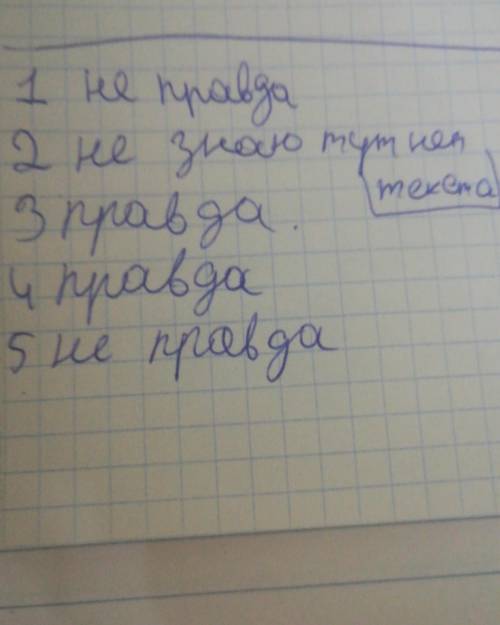 1 не правда
2 не знаю тут нет
текста
3 правда.
4 правда
5 не правда